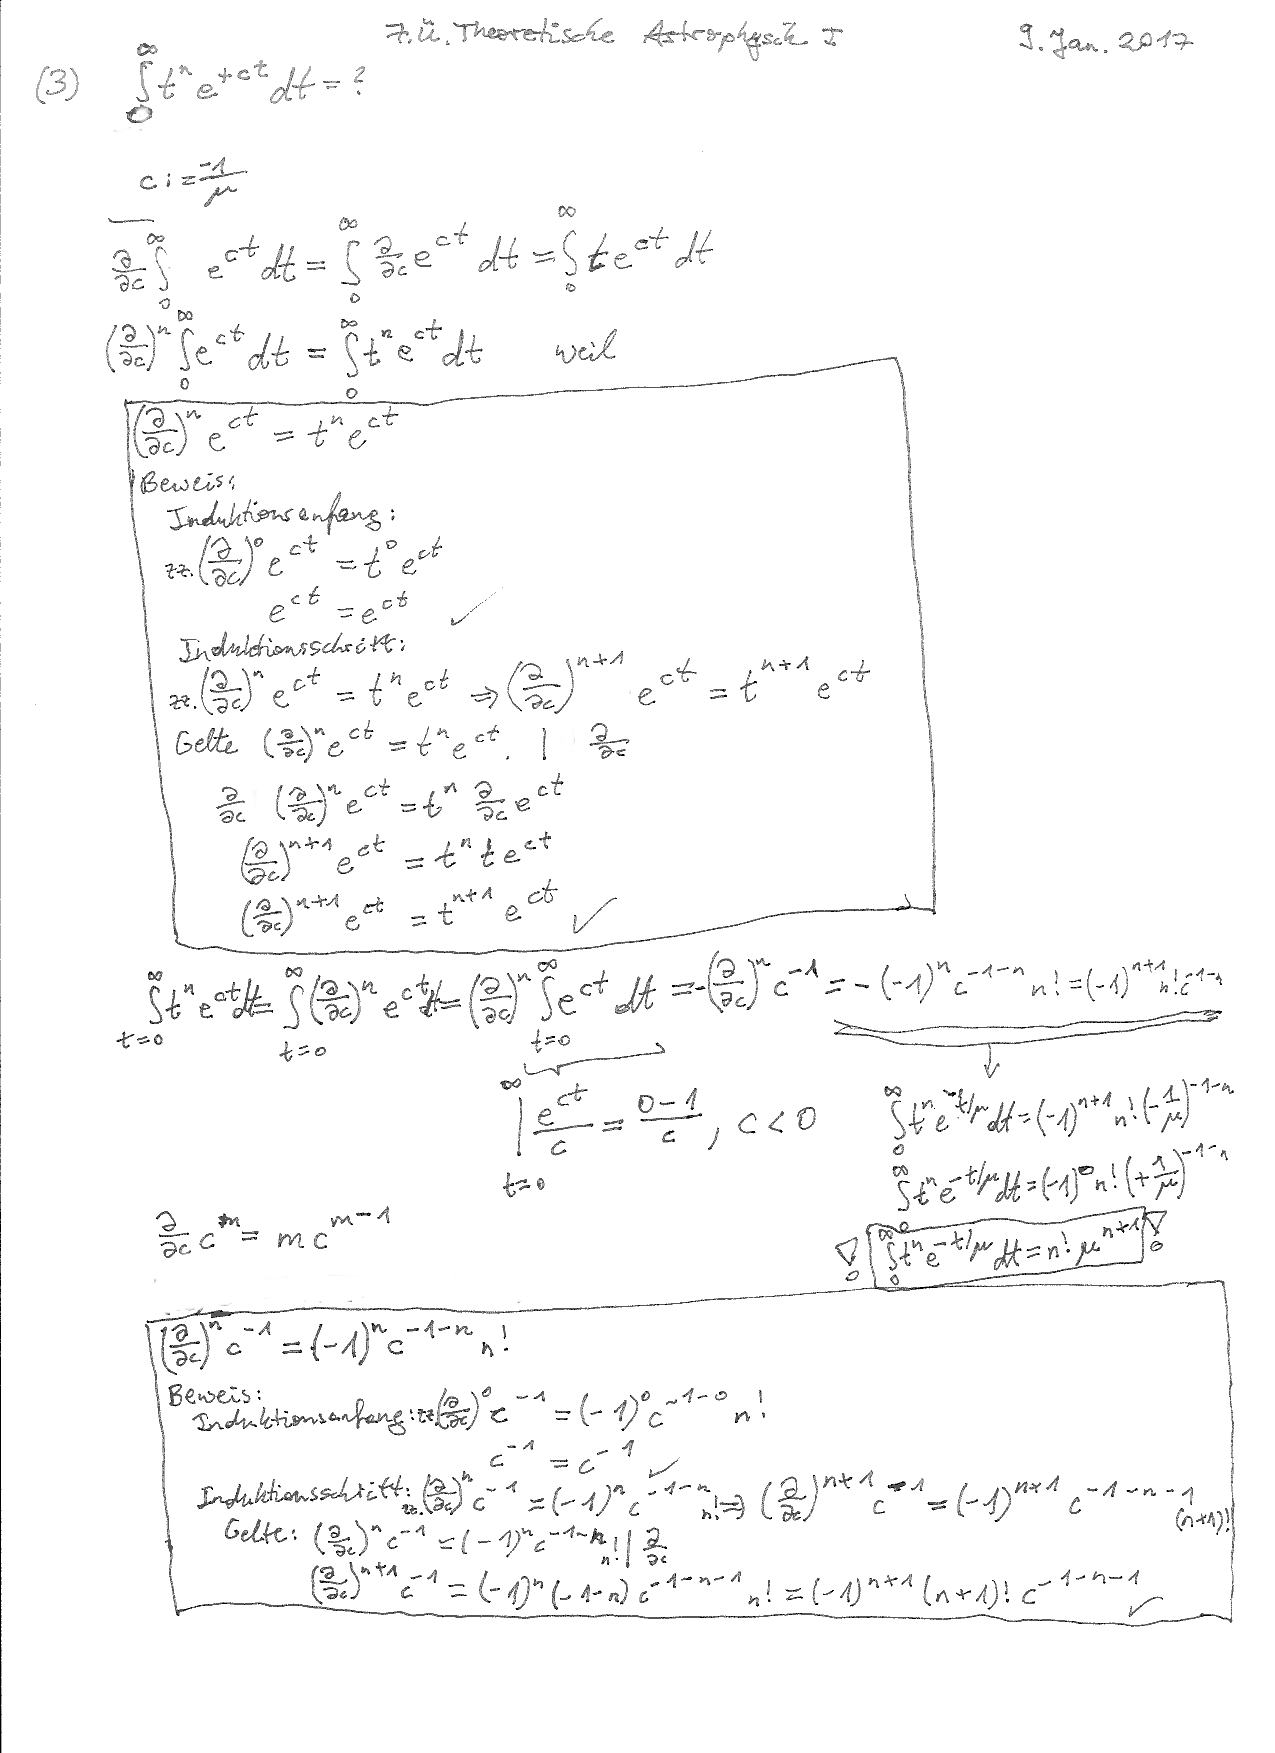 7.Ü. Theoretische Astrophysik I 9. Jan. 2017
(3) ∫₀^∞ tⁿ e^{+ct} dt = ?
c := -1/μ
∂/∂c ∫₀^∞ e^{ct} dt = ∫₀^∞ ∂/∂c e^{ct} dt = ∫₀^∞ t e^{ct} dt
(∂/∂c)ⁿ ∫₀^∞ e^{ct} dt = ∫₀^∞ tⁿ e^{ct} dt weil
(∂/∂c)ⁿ e^{ct} = tⁿ e^{ct}
Beweis:
Induktionsanfang:
zz. (∂/∂c)⁰ e^{ct} = t⁰ e^{ct}
e^{ct} = e^{ct} ✓
Induktionsschritt:
zz. (∂/∂c)ⁿ e^{ct} = tⁿ e^{ct} ⇒ (∂/∂c)^{n+1} e^{ct} = t^{n+1} e^{ct}
Gelte (∂/∂c)ⁿ e^{ct} = tⁿ e^{ct}. | ∂/∂c
∂/∂c (∂/∂c)ⁿ e^{ct} = tⁿ ∂/∂c e^{ct}
(∂/∂c)^{n+1} e^{ct} = tⁿ t e^{ct}
(∂/∂c)^{n+1} e^{ct} = t^{n+1} e^{ct} ✓
∫_{t=0}^∞ tⁿ e^{ct} dt = ∫_{t=0}^∞ (∂/∂c)ⁿ e^{ct} dt = (∂/∂c)ⁿ ∫_{t=0}^∞ e^{ct} dt = -(∂/∂c)ⁿ c^{-1} = -(-1)ⁿ c^{-1-n} n! = (-1)^{n+1} n! c^{-1-n}
|_{t=0}^∞ e^{ct}/c = (0-1)/c, c < 0
∫₀^∞ tⁿ e^{-t/μ} dt = (-1)^{n+1} n! (-1/μ)^{-1-n}
∫₀^∞ tⁿ e^{-t/μ} dt = (-1)⁰ n! (+1/μ)^{-1-n}
∂/∂c c^m = m c^{m-1}
! ∫₀^∞ tⁿ e^{-t/μ} dt = n! μ^{n+1} !
(∂/∂c)ⁿ c^{-1} = (-1)ⁿ c^{-1-n} n!
Beweis:
Induktionsanfang: zz. (∂/∂c)⁰ c^{-1} = (-1)⁰ c^{-1-0} n!
c^{-1} = c^{-1} ✓
Induktionsschritt: zz. (∂/∂c)ⁿ c^{-1} = (-1)ⁿ c^{-1-n} n! ⇒ (∂/∂c)^{n+1} c^{-1} = (-1)^{n+1} c^{-1-n-1} (n+1)!
Gelte: (∂/∂c)ⁿ c^{-1} = (-1)ⁿ c^{-1-n} n! | ∂/∂c
(∂/∂c)^{n+1} c^{-1} = (-1)ⁿ (-1-n) c^{-1-n-1} n! = (-1)^{n+1} (n+1)! c^{-1-n-1} ✓